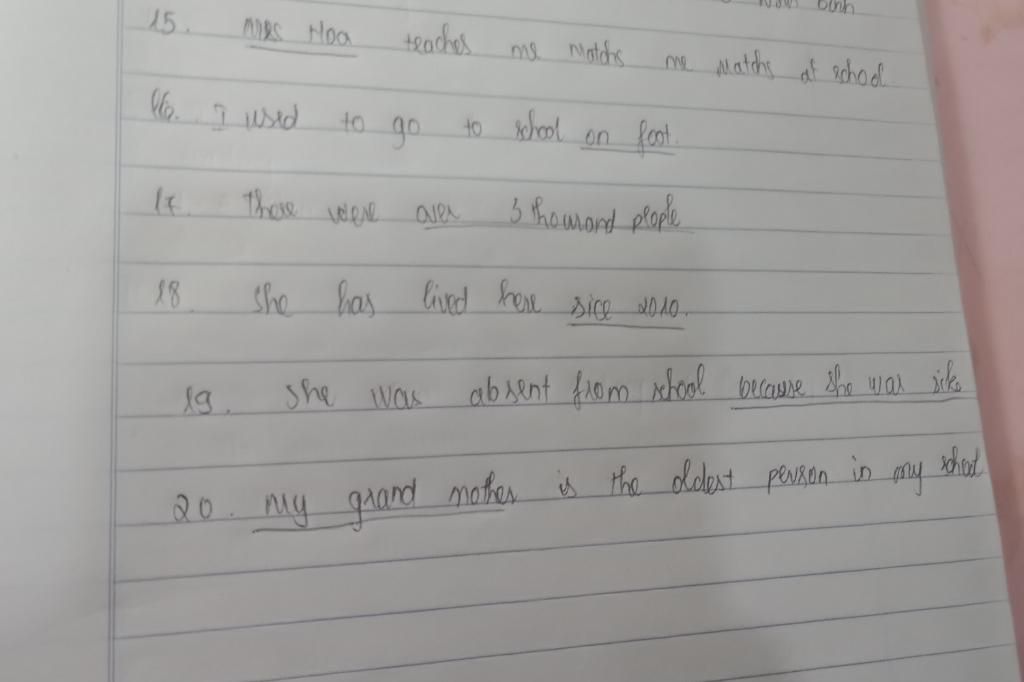 binh
15. Mrs Hoa teaches me Matchs me Matchs at school
16. I used to go to school on foot.
17. There were over 3 thousand people
18. She has lived here sice 2010.
19. She was absent from school because she was sik.
20. My grand mother is the oldest person in my school